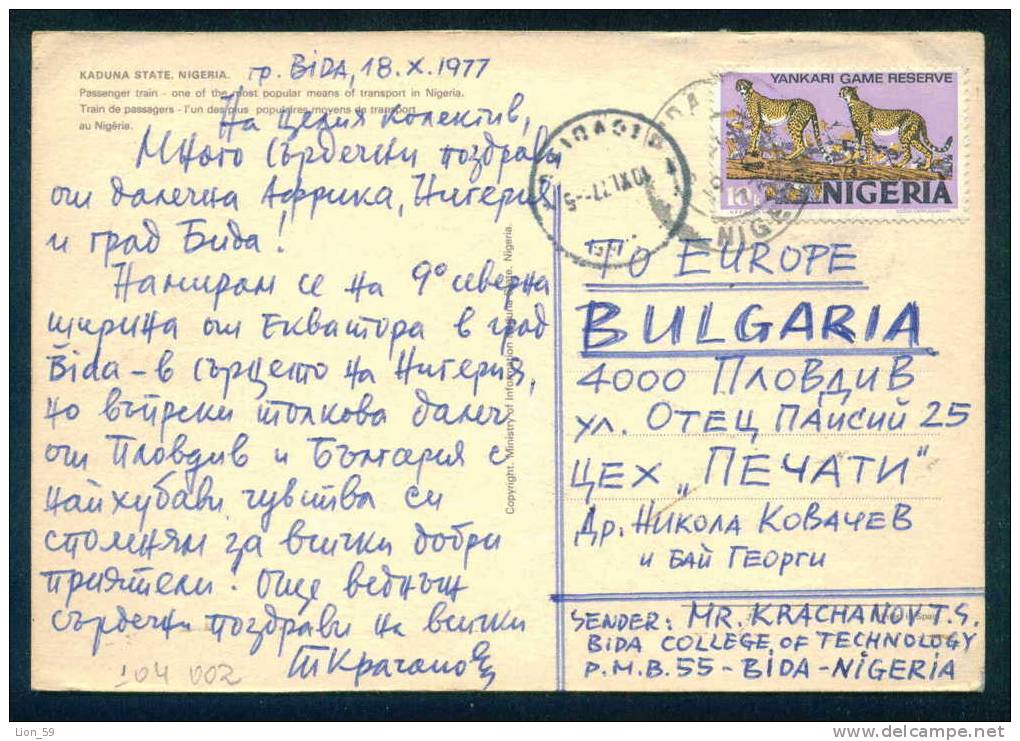 KADUNA STATE, NIGERIA.
Passenger train - one of the most popular means of transport in Nigeria.
Train de passagers - l'un des plus populaires moyens de transport
au Nigéria.
гр. BiDA, 18.X.1977
На целия колектив,
Много сърдечни поздрави
от далечна Африка, Нигерия
и град Бида!
Намирам се на 9° северна
ширина от Екватора в град
Bida - в сърцето на Нигерия,
но въпреки толкова далеч
от Пловдив и България с
найхубави чувства си
спомням за всички добри
приятели! Още веднъщ
сърдечни поздрави на всички
ТКрачанов
104 002
Copyright. Ministry of Information Kaduna State. Nigeria.
YANKARI GAME RESERVE
NIGERIA
10XI.77--5
NIGE
TO EUROPE
BULGARIA
4000 ПЛОВДИВ
УЛ. ОТЕЦ ПАИСИЙ 25
ЦЕХ „ПЕЧАТИ"
ДР. НИКОЛА КОВАЧЕВ
И БАЙ ГЕОРГИ
SENDER: MR. KRACHANOV.T.S.
BIDA COLLEGE OF TECHNOLOGY
P.M.B. 55 - BIDA - NIGERIA
Lion_59
http://www.delcampe.net